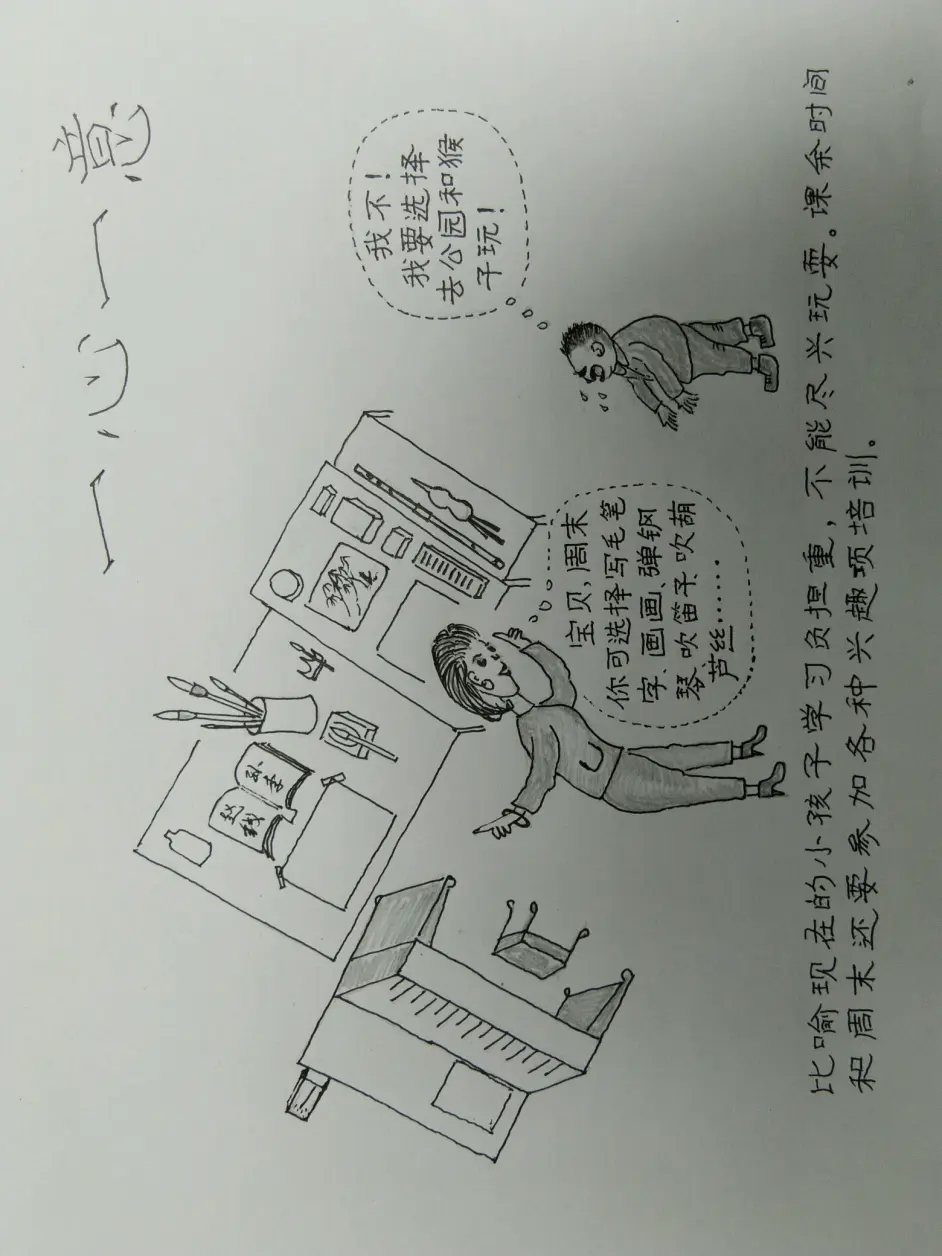 一心一意
宝贝，周末
你可选择写毛笔
字、画画、弹钢
琴、吹笛子、吹葫
芦丝……
我不！
我要选择
去公园和猴
子玩！
赵钱
孙李
比喻现在的小孩子学习负担重，不能尽兴玩耍。课余时间
和周末还要参加各种兴趣项培训。